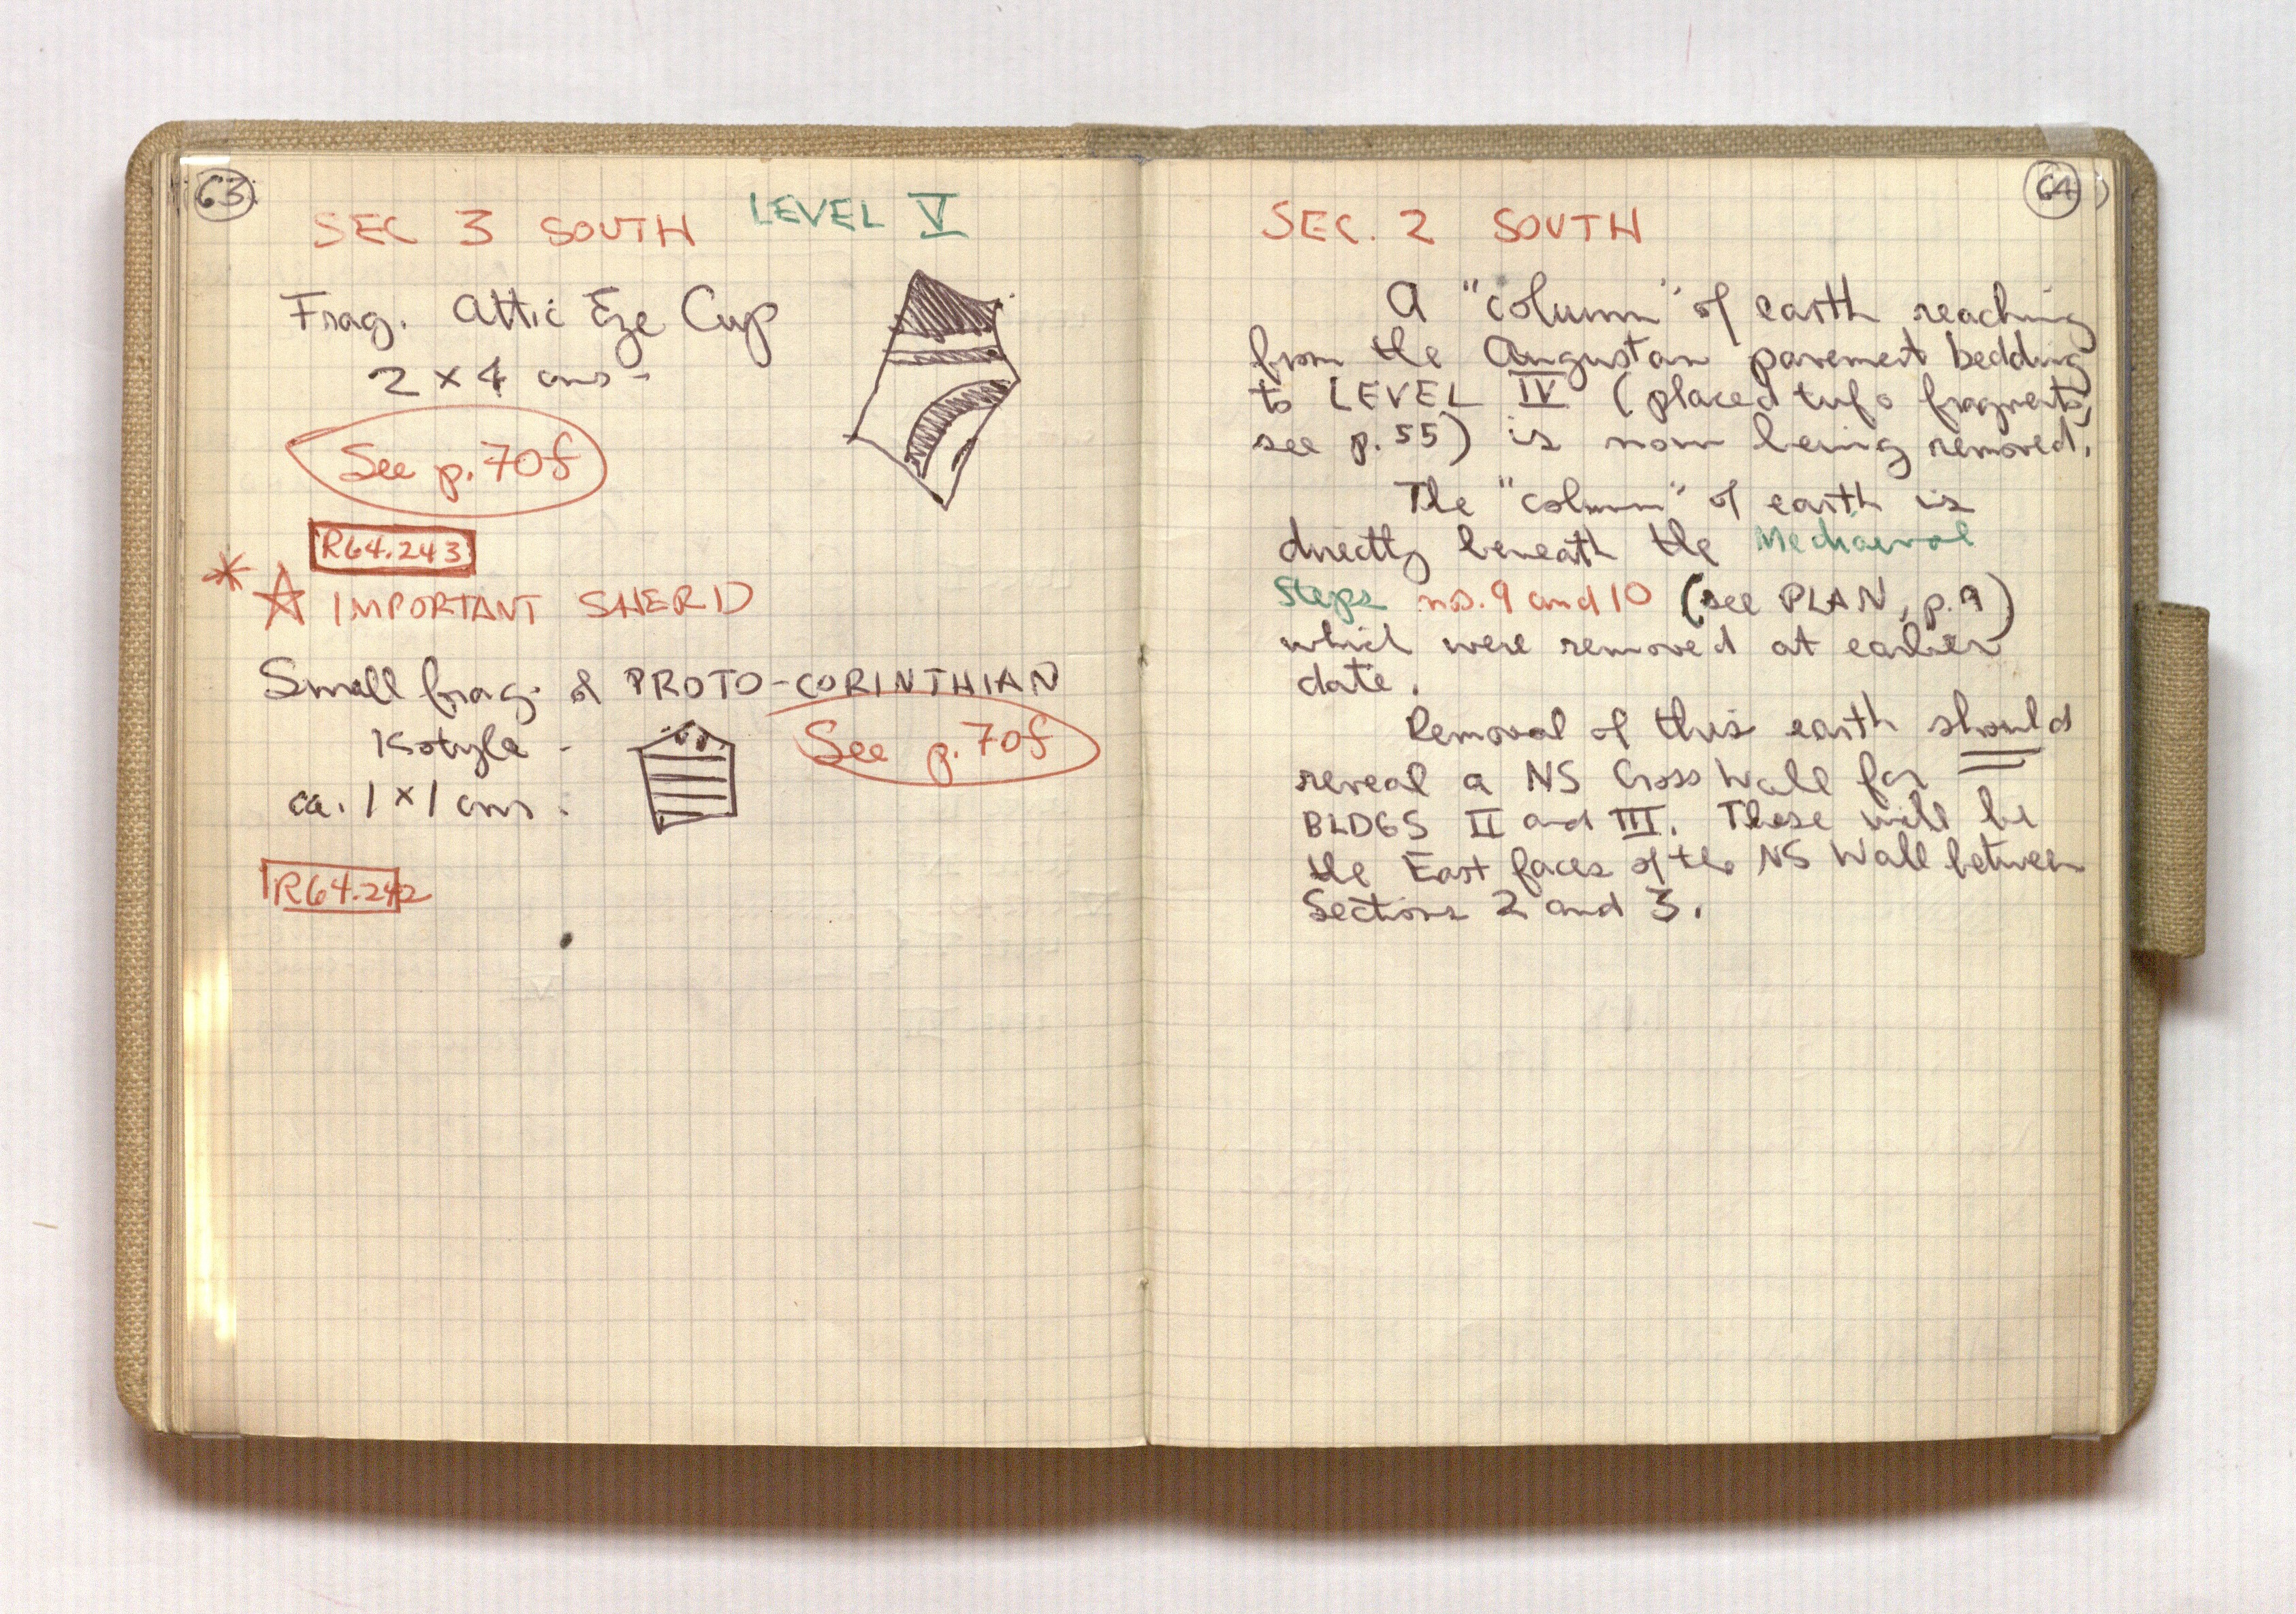 63
SEC 3 SOUTH LEVEL V
Frag. Attic Eye Cup
2 x 4 cms -
See p. 70f
R64.243
* ☆ IMPORTANT SHERD
Small frag. of PROTO-CORINTHIAN
Kotyle -
See p. 70f
ca. 1 x 1 cms.
R64.242
64
SEC. 2 SOUTH
A "column" of earth reaching
from the Augustan pavement bedding
to LEVEL IV (placed tufo fragments,
see p. 55) is now being removed.
The "column" of earth is
directly beneath the Mediaeval
Steps nos. 9 and 10 (see PLAN, p. 9)
which were removed at earlier
date.
Removal of this earth should
reveal a NS Cross Wall for
BLDGS II and III. These will be
the East faces of the NS Wall between
Sections 2 and 3.